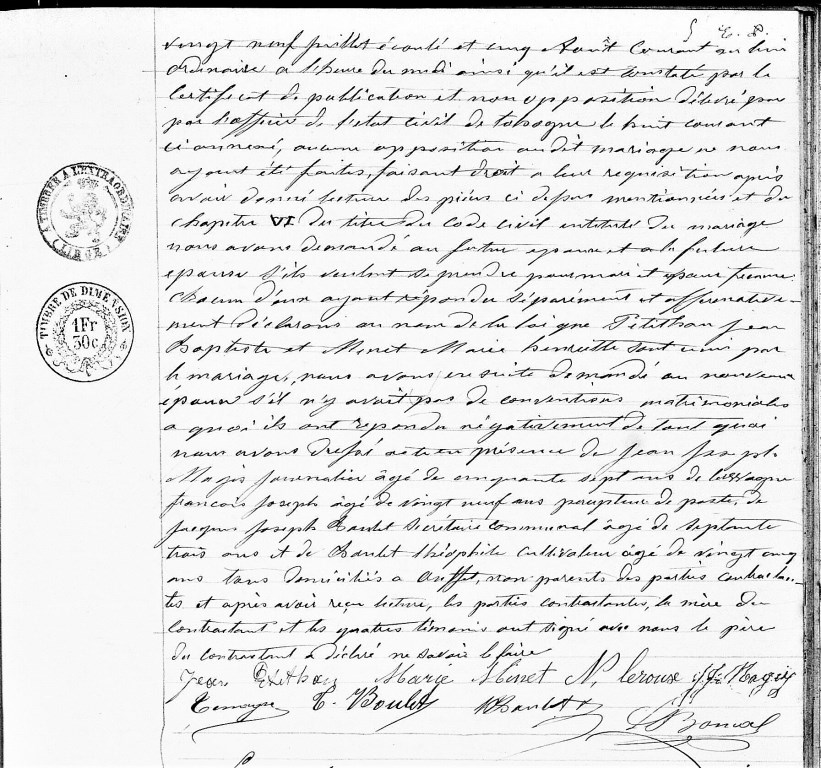 E. P.
vingt neuf juillet écoulé et cinq Août courant au lieu
ordinaire a l'heure du midi ainsi qu'il est constaté par le
certificat de publication et non opposition délivré
par l'officier de l'état civil de le huit courant
ci annexé, aucune opposition audit mariage ne nous
ayant été faites, faisant droit a leur requisition après
avoir donné lecture des pièces ci dessus mentionnées et du
chapitre VI du titre du Code civil intitulé du mariage
nous avons demandé au futur epoux et a la future
epouse s'ils veulent se prendre pour mari et pour femme
chacun d'eux ayant répondu séparément et affirmative-
ment déclarons au nom de la loi que Petithan Jean
Baptiste et Minet Marie henriette sont unis par
le mariage, nous avons ensuite demandé au nouveaux
epoux s'il n'y avait pas de conventions matrimoniales
a quoi ils ont repondu négativement de tout quoi
nous avons dressé acte en présence de Jean Joseph
Magis Journalier âgé de cinquante sept ans de
francois Joseph âgé de vingt neuf ans percepteur de poste, de
Jacques Joseph Boulet Secrétaire communal âgé de septante
trois ans et de Boulet théophile cultivateur âgé de vingt cinq
ans tous domiciliés a Ouffet, non parents des parties contractan-
tes et après avoir reçu lecture, les parties contractantes, la mère du
contractant et les quatres témoins ont signé avec nous le père
du contractant a déclaré ne savoir le faire
Jean Petithan Marie Minet N, leroux J. J. Magis
T. Boulet Boulet
TIMBRÉE A L'EXTRAORDINAIRE
(LIEGE)
TIMBRE DE DIMENSION
1Fr
30c